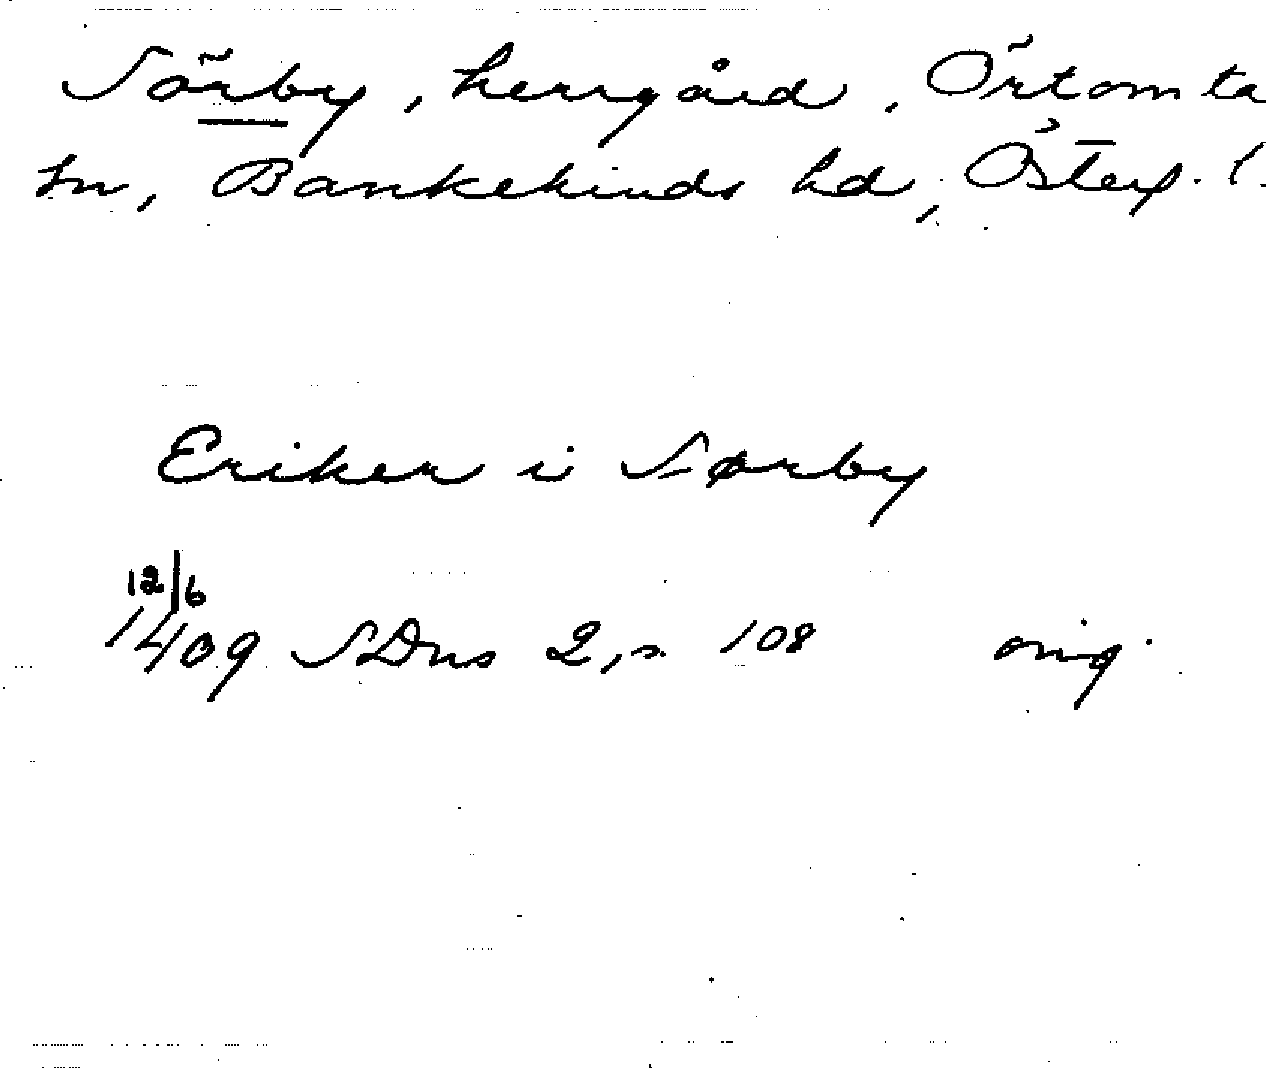 Sörby, herrgård, Örtomta
sn, Bankekinds hd, Österg. l.
Eriker i Sørby
12/6
1409 SDns 2, s. 108 orig.